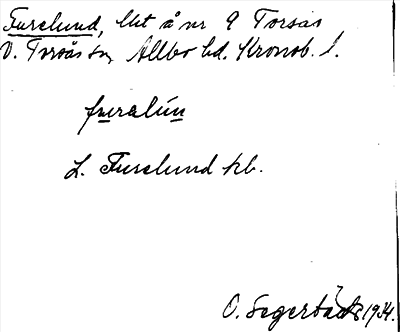 Furelund, lht å nr 9 Torsås
V. Torsås sn, Allbo hd. Kronob. l.
furalún
L. Furelund kb.
O. Segerbäck 1934.